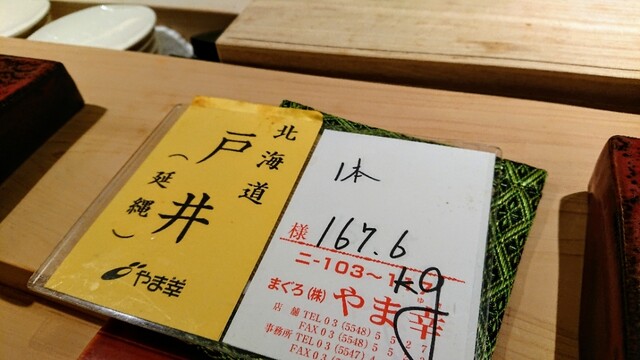 北海道
戸井
（延縄）
やま幸
1本
様
167.6
kg
ニ-103～1
まぐろ(株)やま幸
店舗 TEL 03(5548)5527
FAX 03(5548)5
事務所 TEL 03(5547)
FAX 03(55